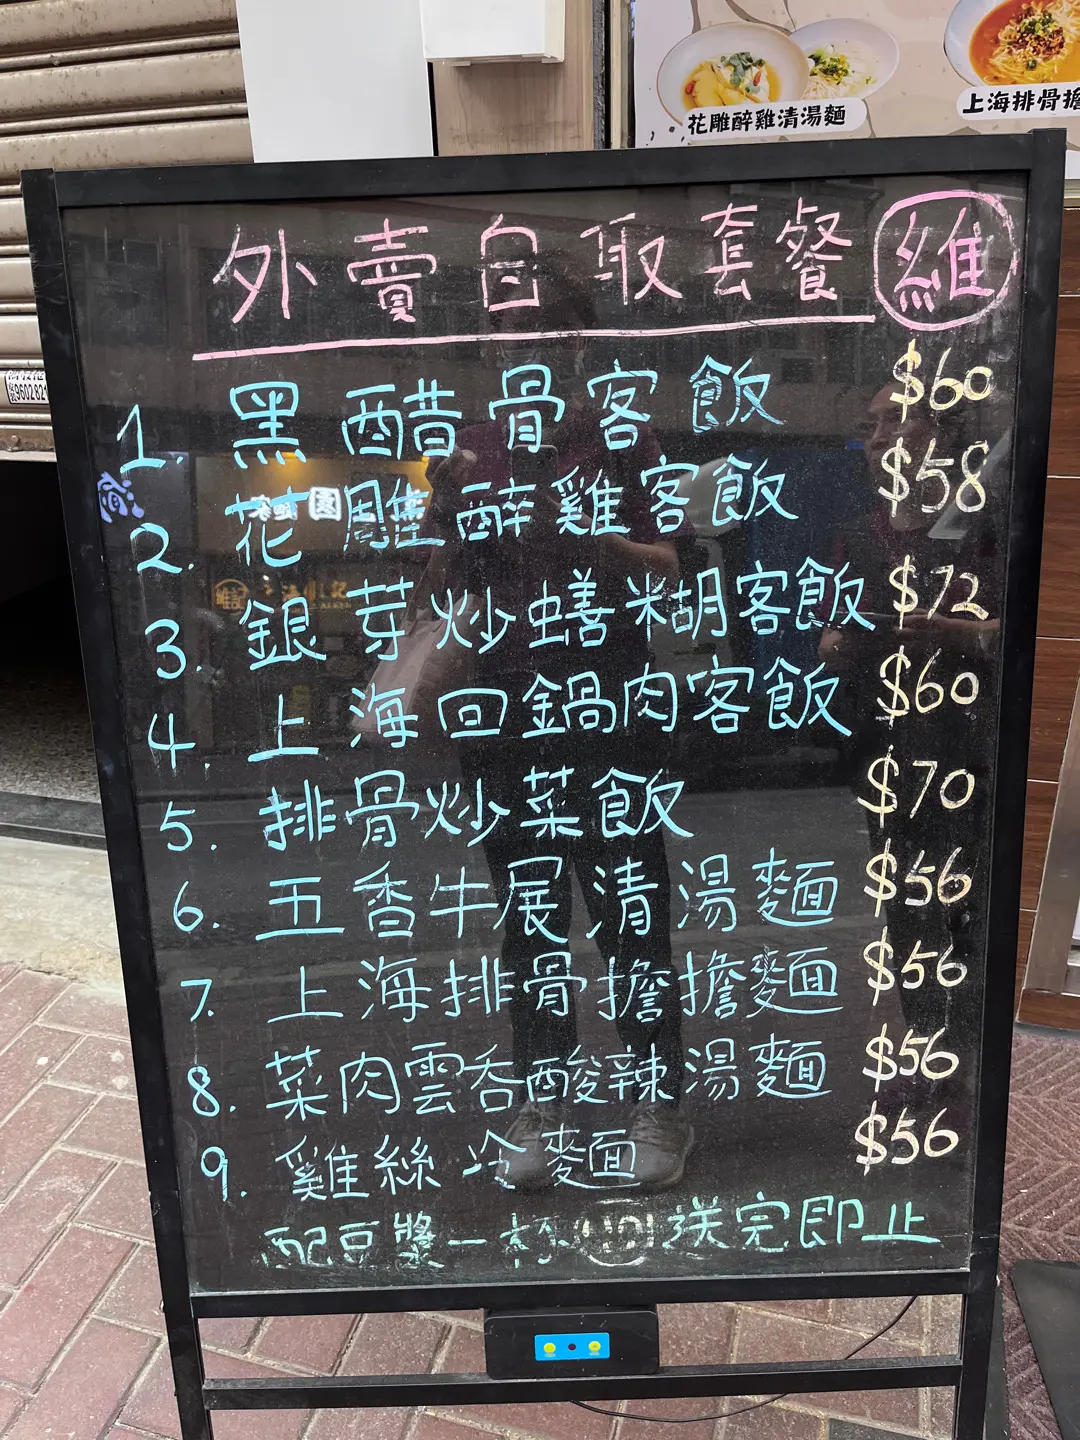 花雕醉雞清湯麵
上海排骨擔
外賣自取套餐 維
1. 黑醋骨客飯 $60
2. 花雕醉雞客飯 $58
3. 銀芽炒蟮糊客飯 $72
4. 上海回鍋肉客飯 $60
5. 排骨炒菜飯 $70
6. 五香牛展清湯麵 $56
7. 上海排骨擔擔麵 $56
8. 菜肉雲呑酸辣湯麵 $56
9. 雞絲冷麵 $56
配豆漿一杯 送完即止